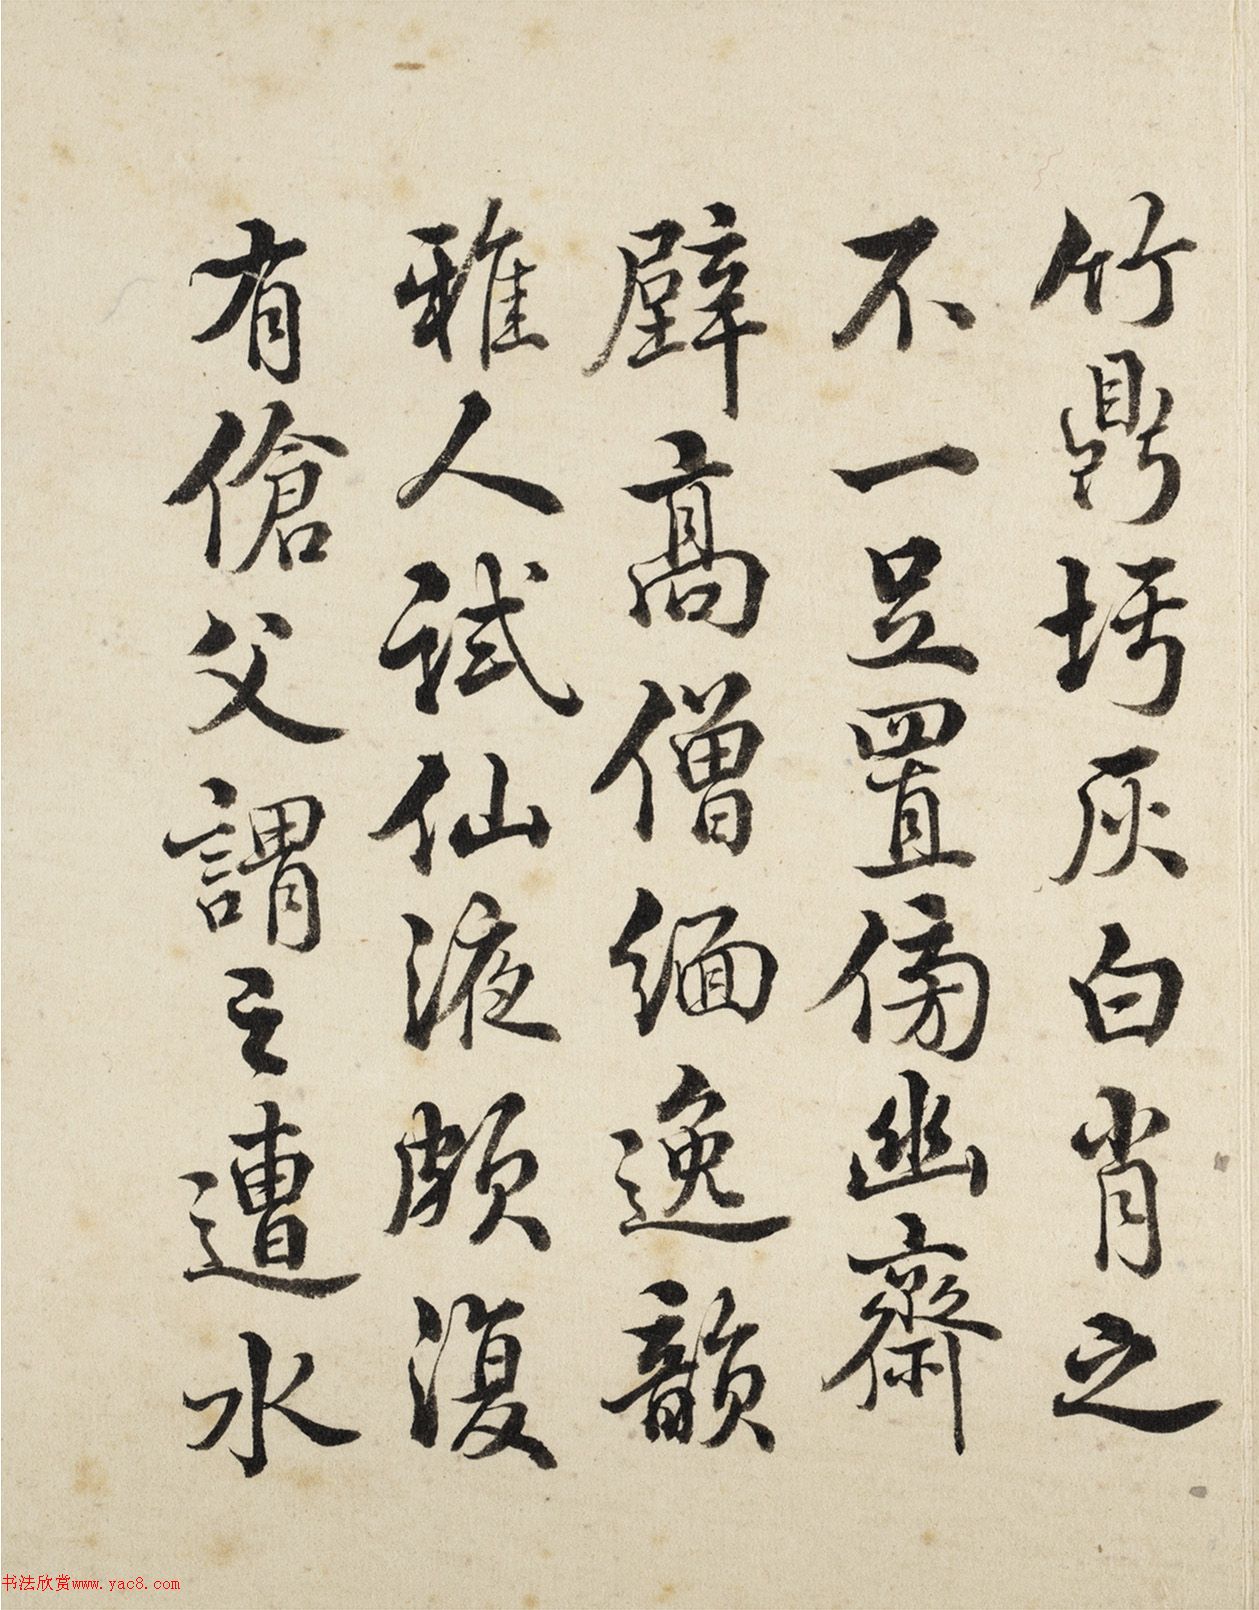 竹鼎圬灰白肖之
不一足置傍幽齋
壁高僧緬逸韻
雅人試仙液頗復
有傖父謂之遭水
书法欣赏www.yac8.com